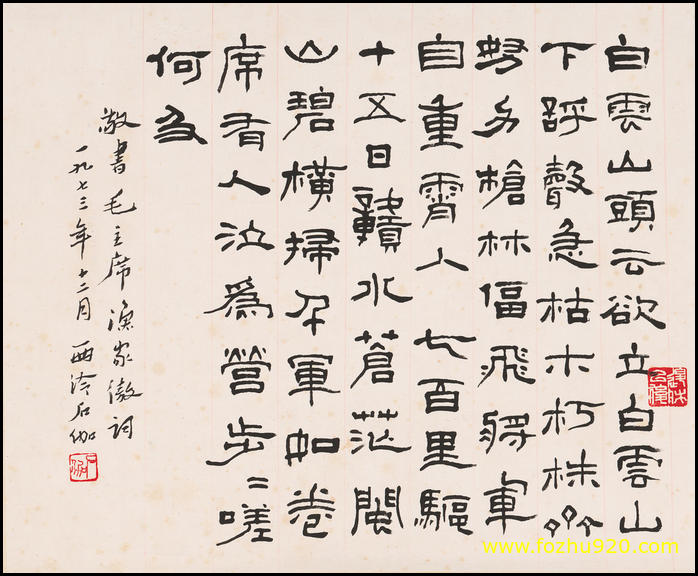 白雲山頭云欲立白雲山
下呼聲急枯木朽株齊
努力槍林偪飛將軍
自重霄入 七百里驅
十五日贛水蒼茫閩
山碧橫掃千軍如卷
席有人泣爲營步〻嗟
何及
敬書毛主席漁家傲詞
一九七三年十二月 西泠石伽
www.fozhu920.com